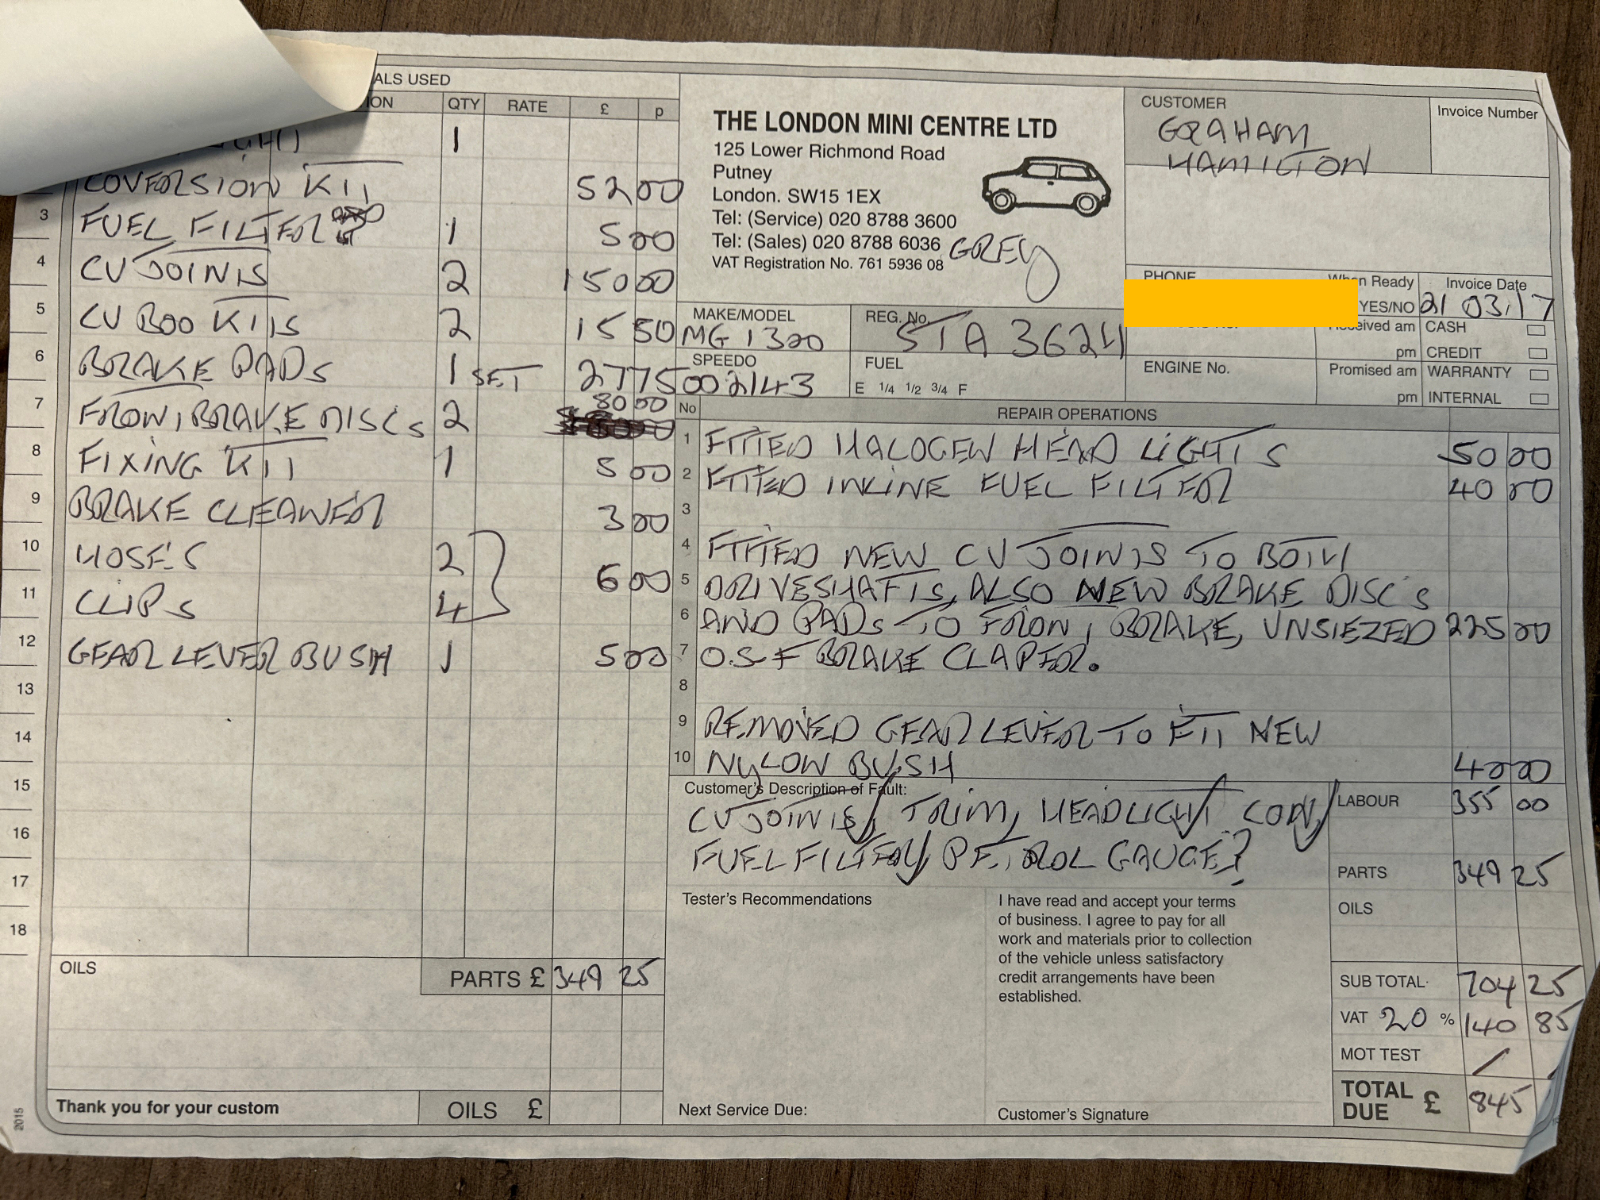 ALS USED
ION QTY RATE £ p
1
COVERSION KIT 52 00
3 FUEL FILTER 1 5 00
4 CV JOINTS 2 150 00
5 CV BOO KITS 2 15 50
6 BRAKE PADS 1 SET 27 75
7 FRONT BRAKE DISCS 2 80 00
8 FIXING KIT 1 5 00
9 BRAKE CLEANER 3 00
10 HOSE'S 2
11 CLIPS 4 6 00
12 GEAR LEVER BUSH 1 5 00
13
14
15
16
17
18
OILS
PARTS £ 349 25
Thank you for your custom
OILS £
2015
THE LONDON MINI CENTRE LTD
125 Lower Richmond Road
Putney
London. SW15 1EX
Tel: (Service) 020 8788 3600
Tel: (Sales) 020 8788 6036
VAT Registration No. 761 5936 08
GREY
CUSTOMER
GRAHAM
HAMILTON
Invoice Number
PHONE
When Ready
YES/NO
Invoice Date
21 03/17
MAKE/MODEL
MG 1300
REG. No.
STA 3624
Received am
pm
CASH
CREDIT
SPEEDO
002143
FUEL
E 1/4 1/2 3/4 F
ENGINE No.
Promised am
pm
WARRANTY
INTERNAL
No REPAIR OPERATIONS
1 FITTED HALOGEN HEAD LIGHTS 50 00
2 FITTED INLINE FUEL FILTER 40 00
3
4 FITTED NEW CV JOINTS TO BOTH
5 DRIVESHAFTS, ALSO NEW BRAKE DISC'S
6 AND PADS TO FRONT BRAKE, UNSIEZED 225 00
7 O.S F BRAKE CLAPER.
8
9 REMOVED GEAR LEVER TO FIT NEW
10 NYLON BUSH 40 00
Customer's Description of Fault:
CV JOINTS, TRIM, HEADLIGHT CONV
FUEL FILTER, PETROL GAUGE?
LABOUR 355 00
PARTS 349 25
OILS
SUB TOTAL 704 25
VAT 20 % 140 85
MOT TEST /
TOTAL DUE £ 845
Tester's Recommendations
Next Service Due:
I have read and accept your terms
of business. I agree to pay for all
work and materials prior to collection
of the vehicle unless satisfactory
credit arrangements have been
established.
Customer's Signature